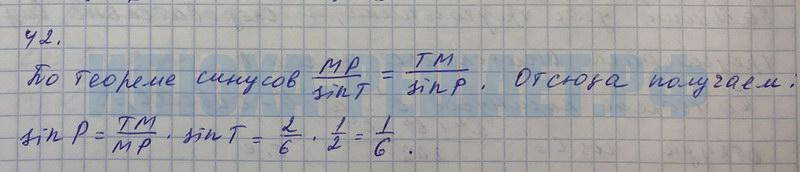 42.
По теореме синусов MP/sinT = TM/sinP. Отсюда получаем:
sinP = TM/MP · sinT = 2/6 · 1/2 = 1/6.